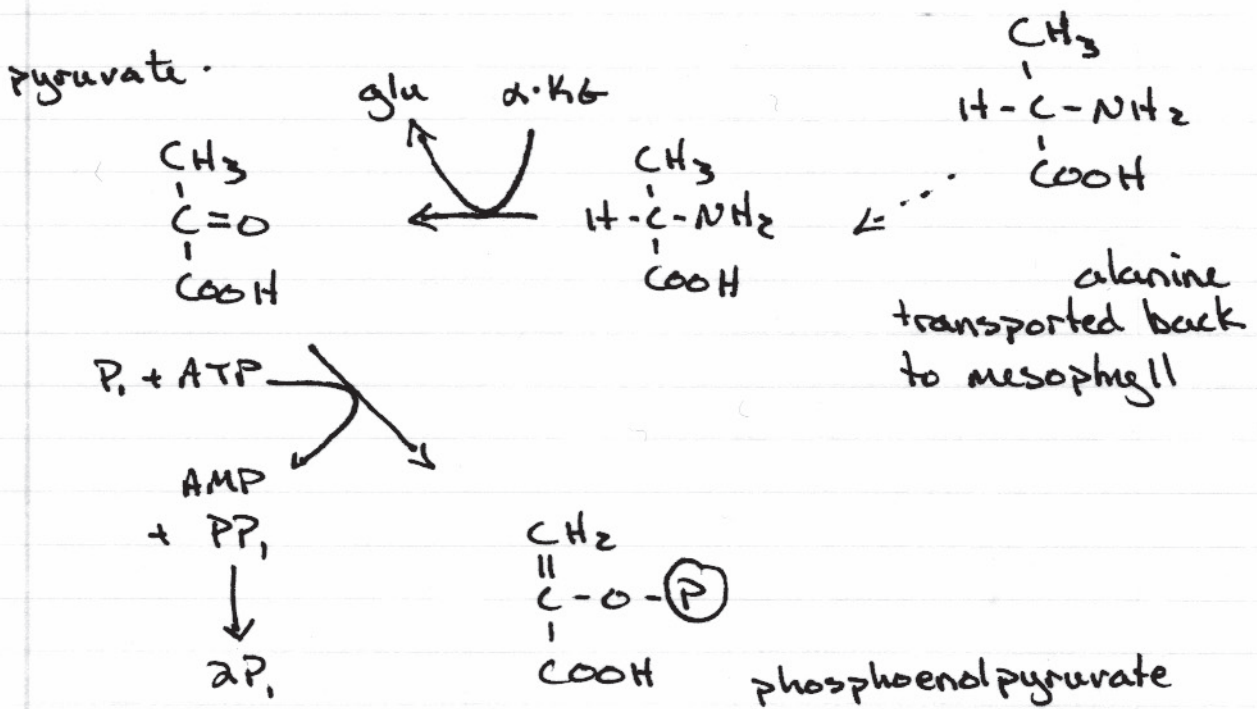 pyruvate.
glu α·KG
CH3
C=O
COOH
CH3
H-C-NH2
COOH
CH3
H-C-NH2
COOH
alanine
transported back
to mesophyll
Pi + ATP
AMP
+ PPi
2Pi
CH2
||
C-O-P
COOH
phosphoenolpyruvate